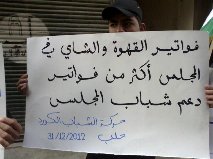 فواتير القهوة والشاي في
المجلس أكثر من فواتير
دعم شباب المجلس
حركة الشباب الكورد
حلب
31/12/2012